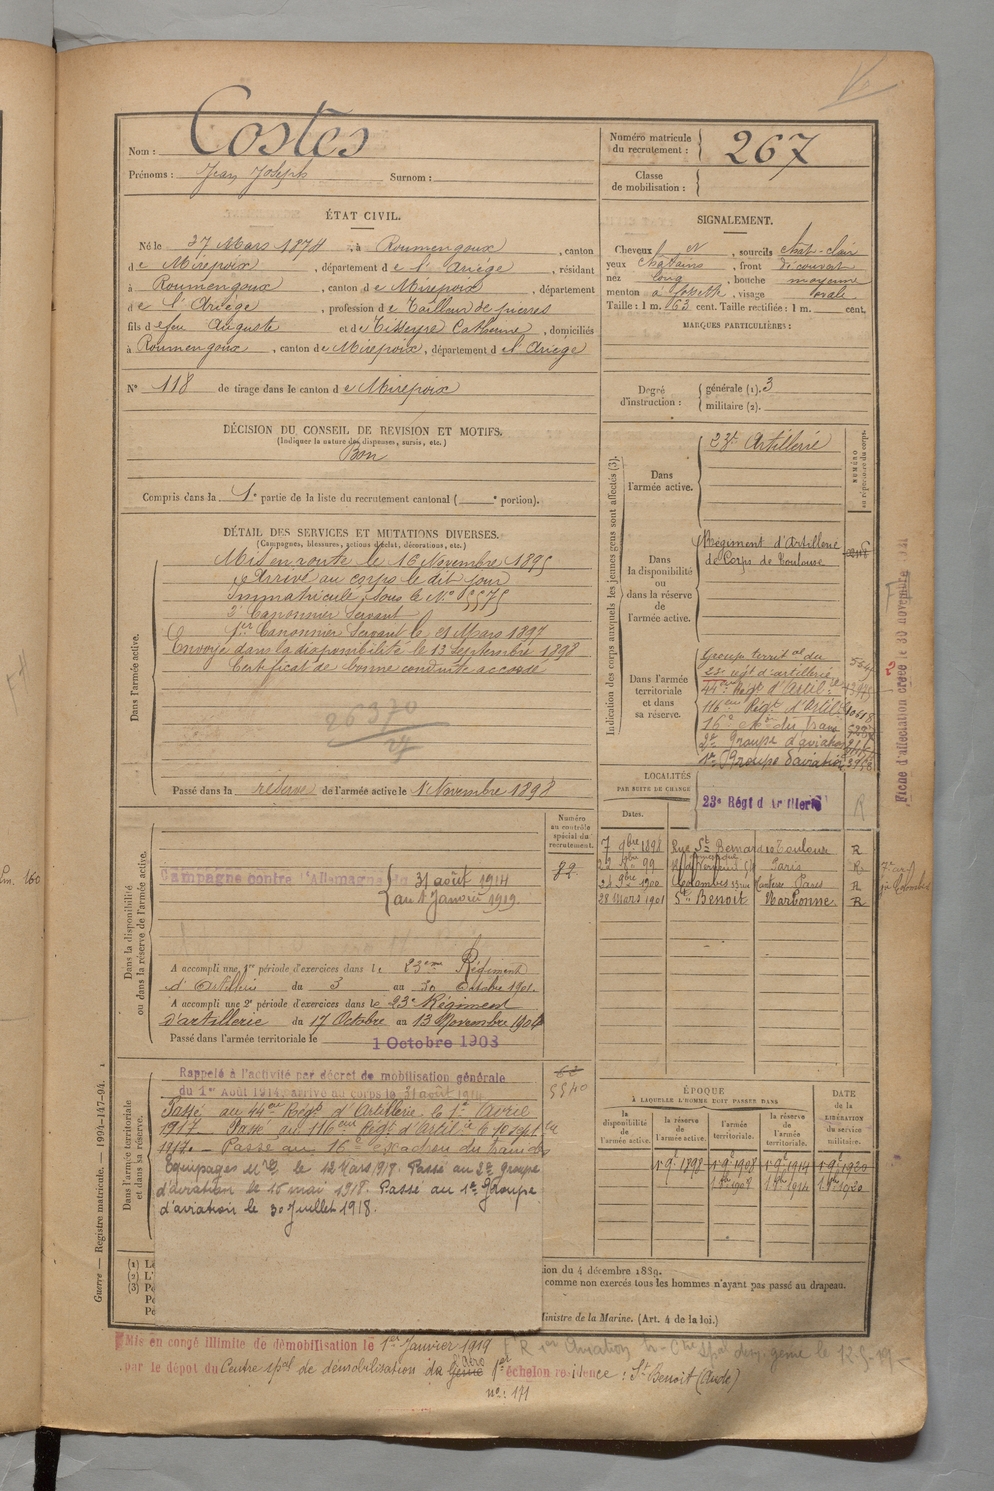 Nom : Costes
Prénoms : Jean Joseph Surnom :
Numéro matricule du recrutement : 267
Classe de mobilisation :
ÉTAT CIVIL.
Né le 27 Mars 1874, à Roumengoux, canton
de Mirepoix, département de l'Ariège, résidant
à Roumengoux, canton de Mirepoix, département
de l'Ariège, profession de Tailleur de pierres
fils de feu Auguste et de Tisseyre Catherine, domiciliés
à Roumengoux, canton de Mirepoix, département de l'Ariège
N° 118 de tirage dans le canton de Mirepoix
SIGNALEMENT.
Cheveux et sourcils chat-clair
yeux Chatains, front découvert
nez long, bouche moyenne
menton à fossette, visage ovale
Taille : 1 m. 63 cent. Taille rectifiée : 1 m. cent.
MARQUES PARTICULIÈRES :
Degré d'instruction : générale (1). 3
militaire (2).
DÉCISION DU CONSEIL DE REVISION ET MOTIFS.
(Indiquer la nature des dispenses, sursis, etc.)
Bon
Compris dans la 1e partie de la liste du recrutement cantonal ( e portion).
DÉTAIL DES SERVICES ET MUTATIONS DIVERSES.
(Campagnes, blessures, actions d'éclat, décorations, etc.)
Dans l'armée active.
Mis en route le 16 Novembre 1895
Arrivé au corps le dit jour
Immatriculé sous le N°
2e Canonnier Servant
1er Canonnier Servant le 21 Mars 1897
Envoyé dans la disponibilité le 13 Septembre 1898
Certificat de bonne conduite accordé
26370
Passé dans la réserve de l'armée active le 1 Novembre 1898
Indication des corps auxquels les jeunes gens sont affectés (3).
NUMÉRO au répertoire du corps.
Dans l'armée active.
23e Artillerie
Dans la disponibilité ou dans la réserve de l'armée active.
Régiment d'Artillerie
de Corps de Toulouse
Dans l'armée territoriale et dans sa réserve.
Group territal du
23e régt d'artillerie
44me Régt d'Artil
116me Régt d'Artil 10618
16e du Train
2e Groupe d'aviation
1er Groupe d'aviation
Fiche d'affectation créée le 30 novembre
LOCALITÉS
PAR SUITE DE CHANGE
23e Régt d'Artillerie
R
Dates.
7 9bre 1898 Rue St Bernard Toulouse R
99 Paris R
1900 Colombes Nanterre Paris R
28 Mars 1901 St Benoit Narbonne R
Dans la disponibilité ou dans la réserve de l'armée active.
Numéro au contrôle spécial du recrutement.
82
Campagne contre l'Allemagne du 31 août 1914
au 1 Janvier 1919.
A accompli une 1re période d'exercices dans le 23eme Régiment
d'Artillerie du 3 au 30 Octobre 1901.
A accompli une 2e période d'exercices dans le 23e Régiment
d'artillerie du 17 Octobre au 13 Novembre 1904
Passé dans l'armée territoriale le 1 Octobre 1908
Dans l'armée territoriale et dans sa réserve.
5540
Rappelé à l'activité par décret de mobilisation générale
du 1er Août 1914, arrivé au corps le 31 août 1914
Passé au 44me Régt d'Artillerie le 1er Avril
1917. Passé au 116me Régt d'Artil ie le 10 sept bre
1917. Passé au 16e Escadron du train des
Equipages Mres le 12 Mars 1918. Passé au 2e groupe
d'aviation le 16 mai 1918. Passé au 1er Groupe
d'aviation le 30 Juillet 1918.
ÉPOQUE
À LAQUELLE L'HOMME DOIT PASSER DANS
la disponibilité de l'armée active.
la réserve de l'armée active.
l'armée territoriale.
la réserve de l'armée territoriale.
DATE de la LIBÉRATION du service militaire.
1 9e 1898 1 9e 1908 1 9e 1914 1 9e 1920
1908 1914 1920
tion du 4 décembre 1889.
comme non exercés tous les hommes n'ayant pas passé au drapeau.
Ministre de la Marine. (Art. 4 de la loi.)
Guerre — Registre matricule. — 1994-147-94.
Mis en congé illimité de démobilisation le 1er Janvier 1919
par le dépôt du Centre spal de démobilisation du génie aéro 1er échelon residence : St Benoit (Aude)
n° : 171